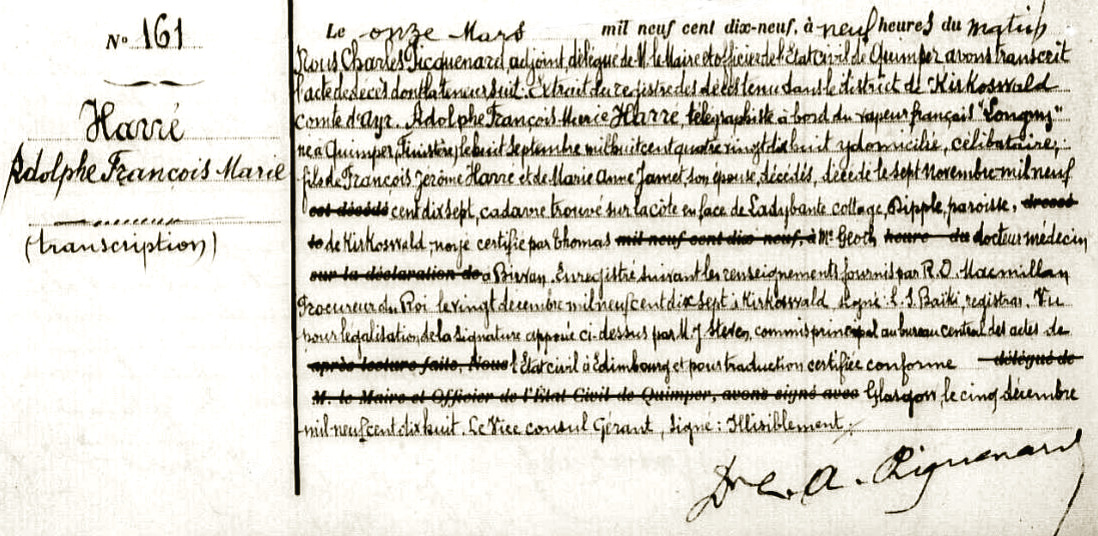 N° 161
Harré
Adolphe François Marie
(transcription)
Le onze Mars mil neuf cent dix-neuf, à neuf heures du matin
Nous Charles Picquenard, adjoint, délégué de M. le Maire et officier de l'Etat Civil de Quimper avons transcrit
l'acte de décès dont la teneur suit. Extrait du registre des décès tenu dans le district de Kirkoswald
comté d'Ayr. Adolphe François Marie Harré, télégraphiste à bord du vapeur français "Longwy"
né à Quimper, Finistère, le huit Septembre mil huit cent quatre vingt dix huit y domicilié, célibataire,
fils de François Jérôme Harré et de Marie Anne Jamet, son épouse, décédés, décédé le sept Novembre mil neuf
est décédé cent dix sept, cadavre trouvé sur la côte en face de Ladybante cottage, Dipple, paroisse,
de Kirkoswald, noyé certifié par Thomas mil neuf cent dix-neuf, à Mc Geoch heure du docteur médecin
sur la déclaration de à Birvan. Enregistré suivant les renseignements fournis par R. D. Macmillan
Procureur du Roi le vingt décembre mil neuf cent dix sept à Kirkoswald signé: L. S. Baïki, registrar. Vu
pour légalisation de la signature apposée ci-dessus par M. J Steven, commis principal au bureau central des actes de
après lecture faite, Nous l'Etat civil à Edimbourg et pour traduction certifiée conforme délégué de
M. le Maire et Officier de l'Etat Civil de Quimper, avons signé avec Glasgow, le cinq décembre
mil neuf cent dix huit. Le Vice consul Gérant, signé: Illisiblement.